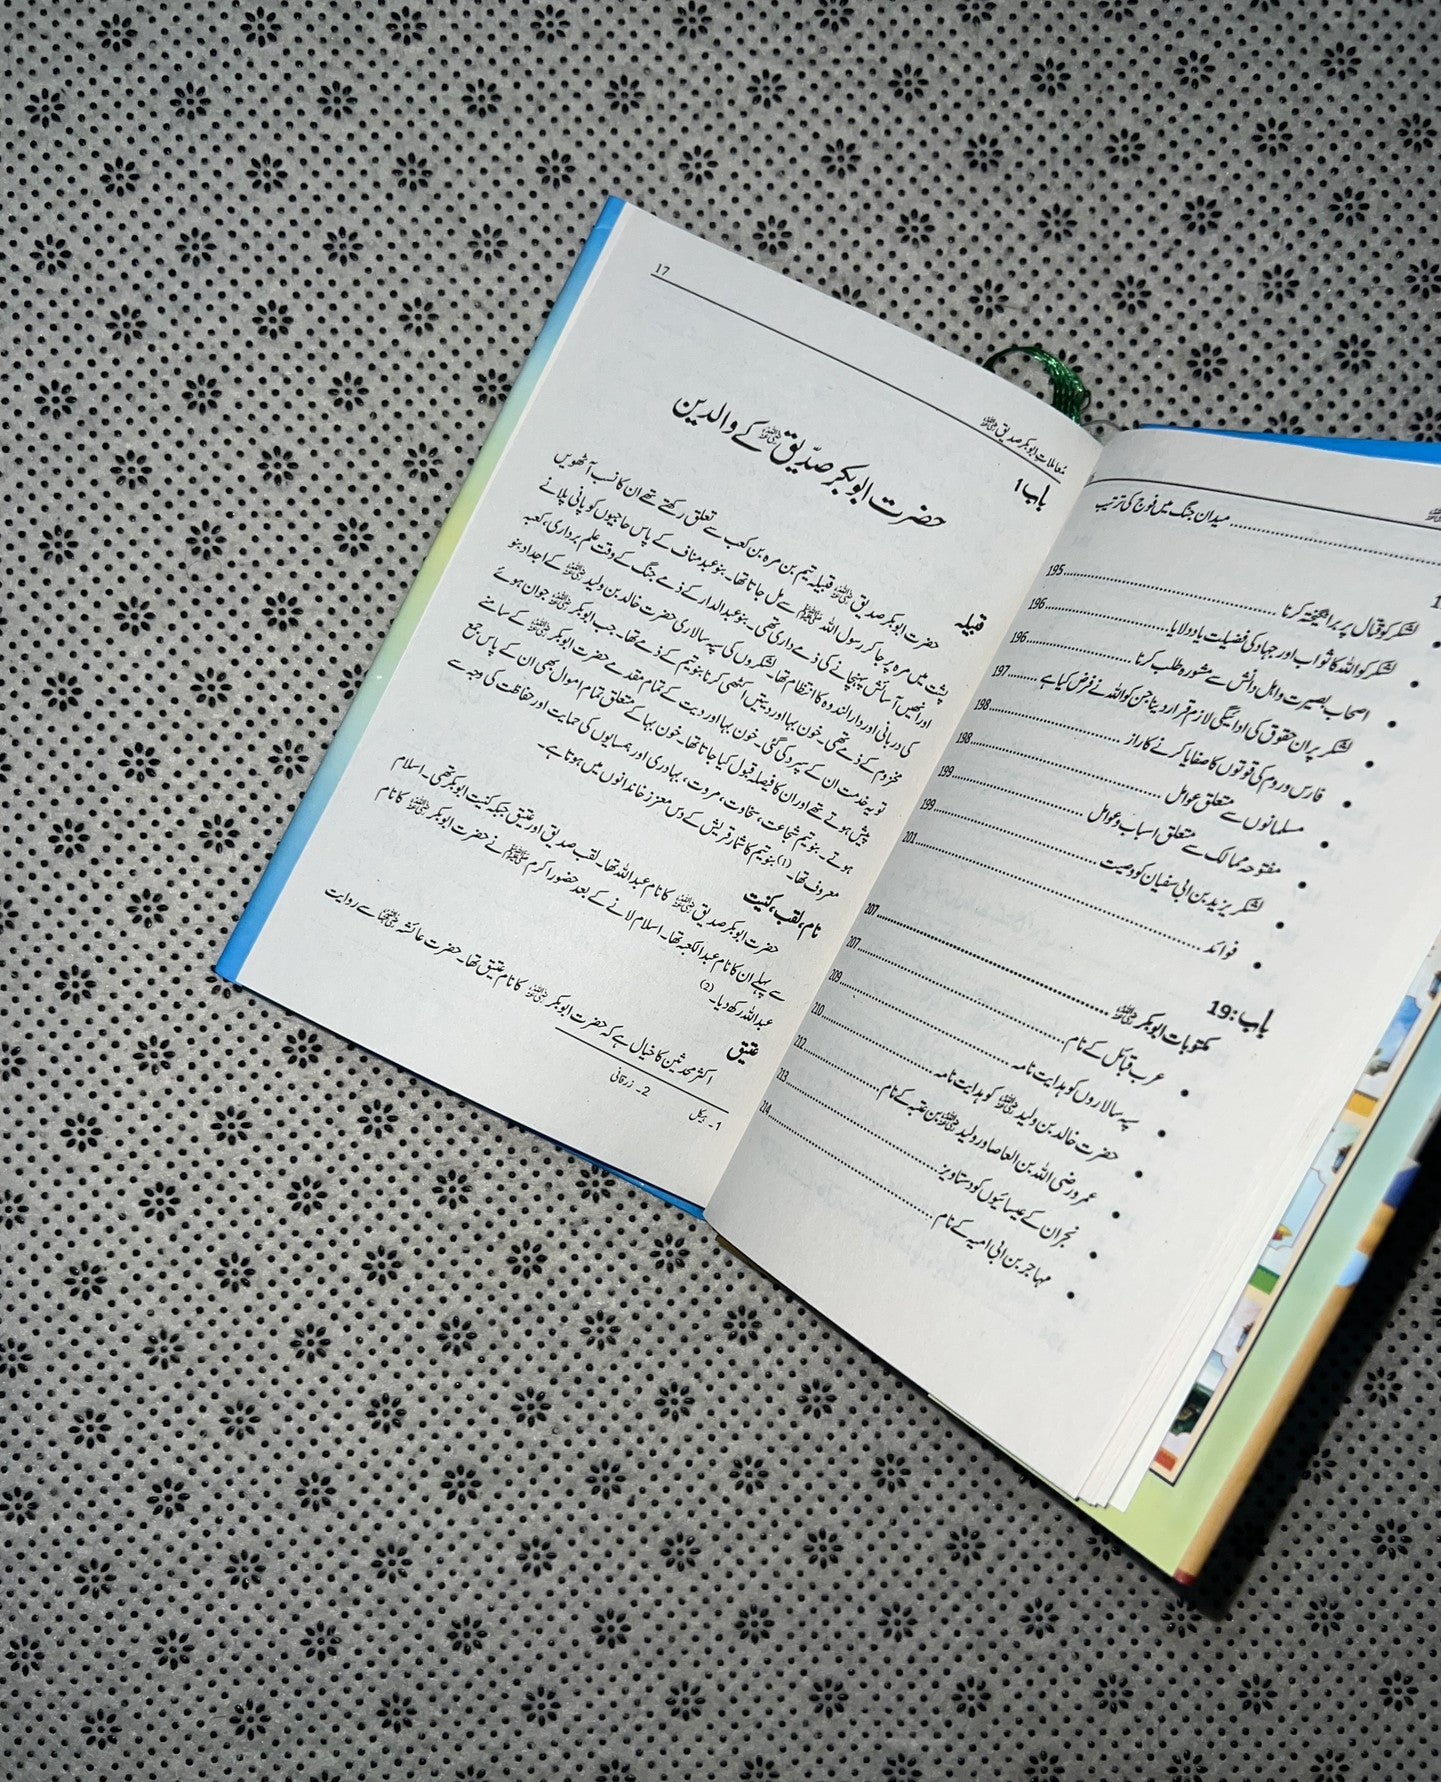 میدان جنگ میں فوج کی ترتیب
195
لشکر کو قتال پر برانگیختہ کرنا
196
لشکر کو اللہ کا ثواب اور جہاد کی فضیلت یاد دلانا
196
اصحاب بصیرت و اہل دانش سے مشورہ طلب کرنا
197
لشکر پر ان حقوق کی ادائیگی لازم قرار دینا جن کو اللہ نے فرض کیا ہے
198
فارس و روم کی قوتوں کا صفایا کرنے کا راز
198
مسلمانوں سے متعلق عوامل
199
مفتوحہ ممالک سے متعلق اسباب و عوامل
199
لشکر یزید بن ابی سفیان کو وصیت
201
فوائد
باب: 19
207
مکتوبات ابو بکر ﷛
207
عرب قبائل کے نام
209
سپہ سالاروں کو ہدایت نامہ
210
حضرت خالد بن ولید ﷛ کو ہدایت نامہ
212
عمرو رضی اللہ بن العاص اور ولید ﷛ بن عقبہ کے نام
213
نجران کے عیسائیوں کو دستاویز
214
مہاجر بن ابی امیہ کے نام
معاملات ابو بکر صدیق ﷛
17
باب 1
حضرت ابو بکر صدّیق ﷛ کے والدین
قبیلہ
حضرت ابو بکر صدیق ﷛ قبیلہ تیم بن مرہ بن کعب سے تعلق رکھتے تھے ان کا نسب آٹھویں
پشت میں مرہ پر جا کر رسول اللہ ﷺ سے مل جاتا تھا۔ بنو عبد مناف کے پاس حاجیوں کو پانی پلانے
اور انھیں آسائش پہنچانے کی ذمے داری تھی۔ بنو عبد الدار کے ذمے جنگ کے وقت علم برداری، کعبہ
کی دربانی اور دار الندوہ کا انتظام تھا۔ لشکروں کی سپہ سالاری حضرت خالد بن ولید ﷛ کے اجداد بنو
مخزوم کے ذمے تھی۔ خون بہا اور دیتیں اکٹھی کرنا بنو تیم کے ذمے تھا۔ جب ابو بکر ﷛ جوان ہوئے
تو یہ خدمت ان کے سپرد کی گئی۔ خون بہا اور دیت کے تمام مقدمے حضرت ابو بکر ﷛ کے سامنے
پیش ہوتے تھے اور ان کا فیصلہ قبول کیا جاتا تھا۔ خون بہا کے متعلق تمام اموال بھی ان کے پاس جمع
ہوتے۔ بنو تیم شجاعت، سخاوت، مروت، بہادری اور ہمسایوں کی حمایت اور حفاظت کی وجہ سے
معروف تھا۔(1) بنو تیم کا شمار قریش کے دس معزز خاندانوں میں ہوتا ہے۔
نام، لقب، کنیت
حضرت ابو بکر صدیق ﷛ کا نام عبد اللہ تھا۔ لقب صدیق اور عتیق جبکہ کنیت ابو بکر تھی۔ اسلام
سے پہلے ان کا نام عبد الکعبہ تھا۔ اسلام لانے کے بعد حضور اکرم ﷺ نے حضرت ابو بکر ﷛ کا نام
عبد اللہ رکھ دیا۔(2)
عتیق
اکثر محدثین کا خیال ہے کہ حضرت ابو بکر ﷛ کا نام عتیق تھا۔ حضرت عائشہ ﷞ سے روایت
1۔ ہیکل 2۔ زرقانی